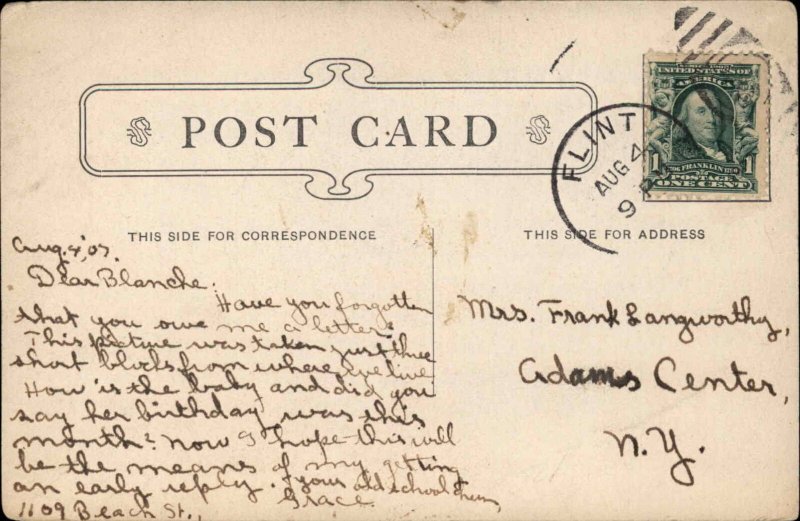 POST CARD
UNITED STATES OF
AMERICA
1706 FRANKLIN 1790
1 1
POSTAGE
ONE CENT
FLINT
AUG 4
9 P
THIS SIDE FOR CORRESPONDENCE
THIS SIDE FOR ADDRESS
Aug. 4, '07.
Dear Blanche:
Have you forgotten
that you owe me a letter?
This picture was taken just three
short blocks from where we live
How is the baby and did you
say her birthday was this
month? Now I hope this will
be the means of my getting
an early reply. Your old school chum
Grace
1109 Beach St.,
Mrs. Frank Langworthy,
Adams Center,
N.Y.